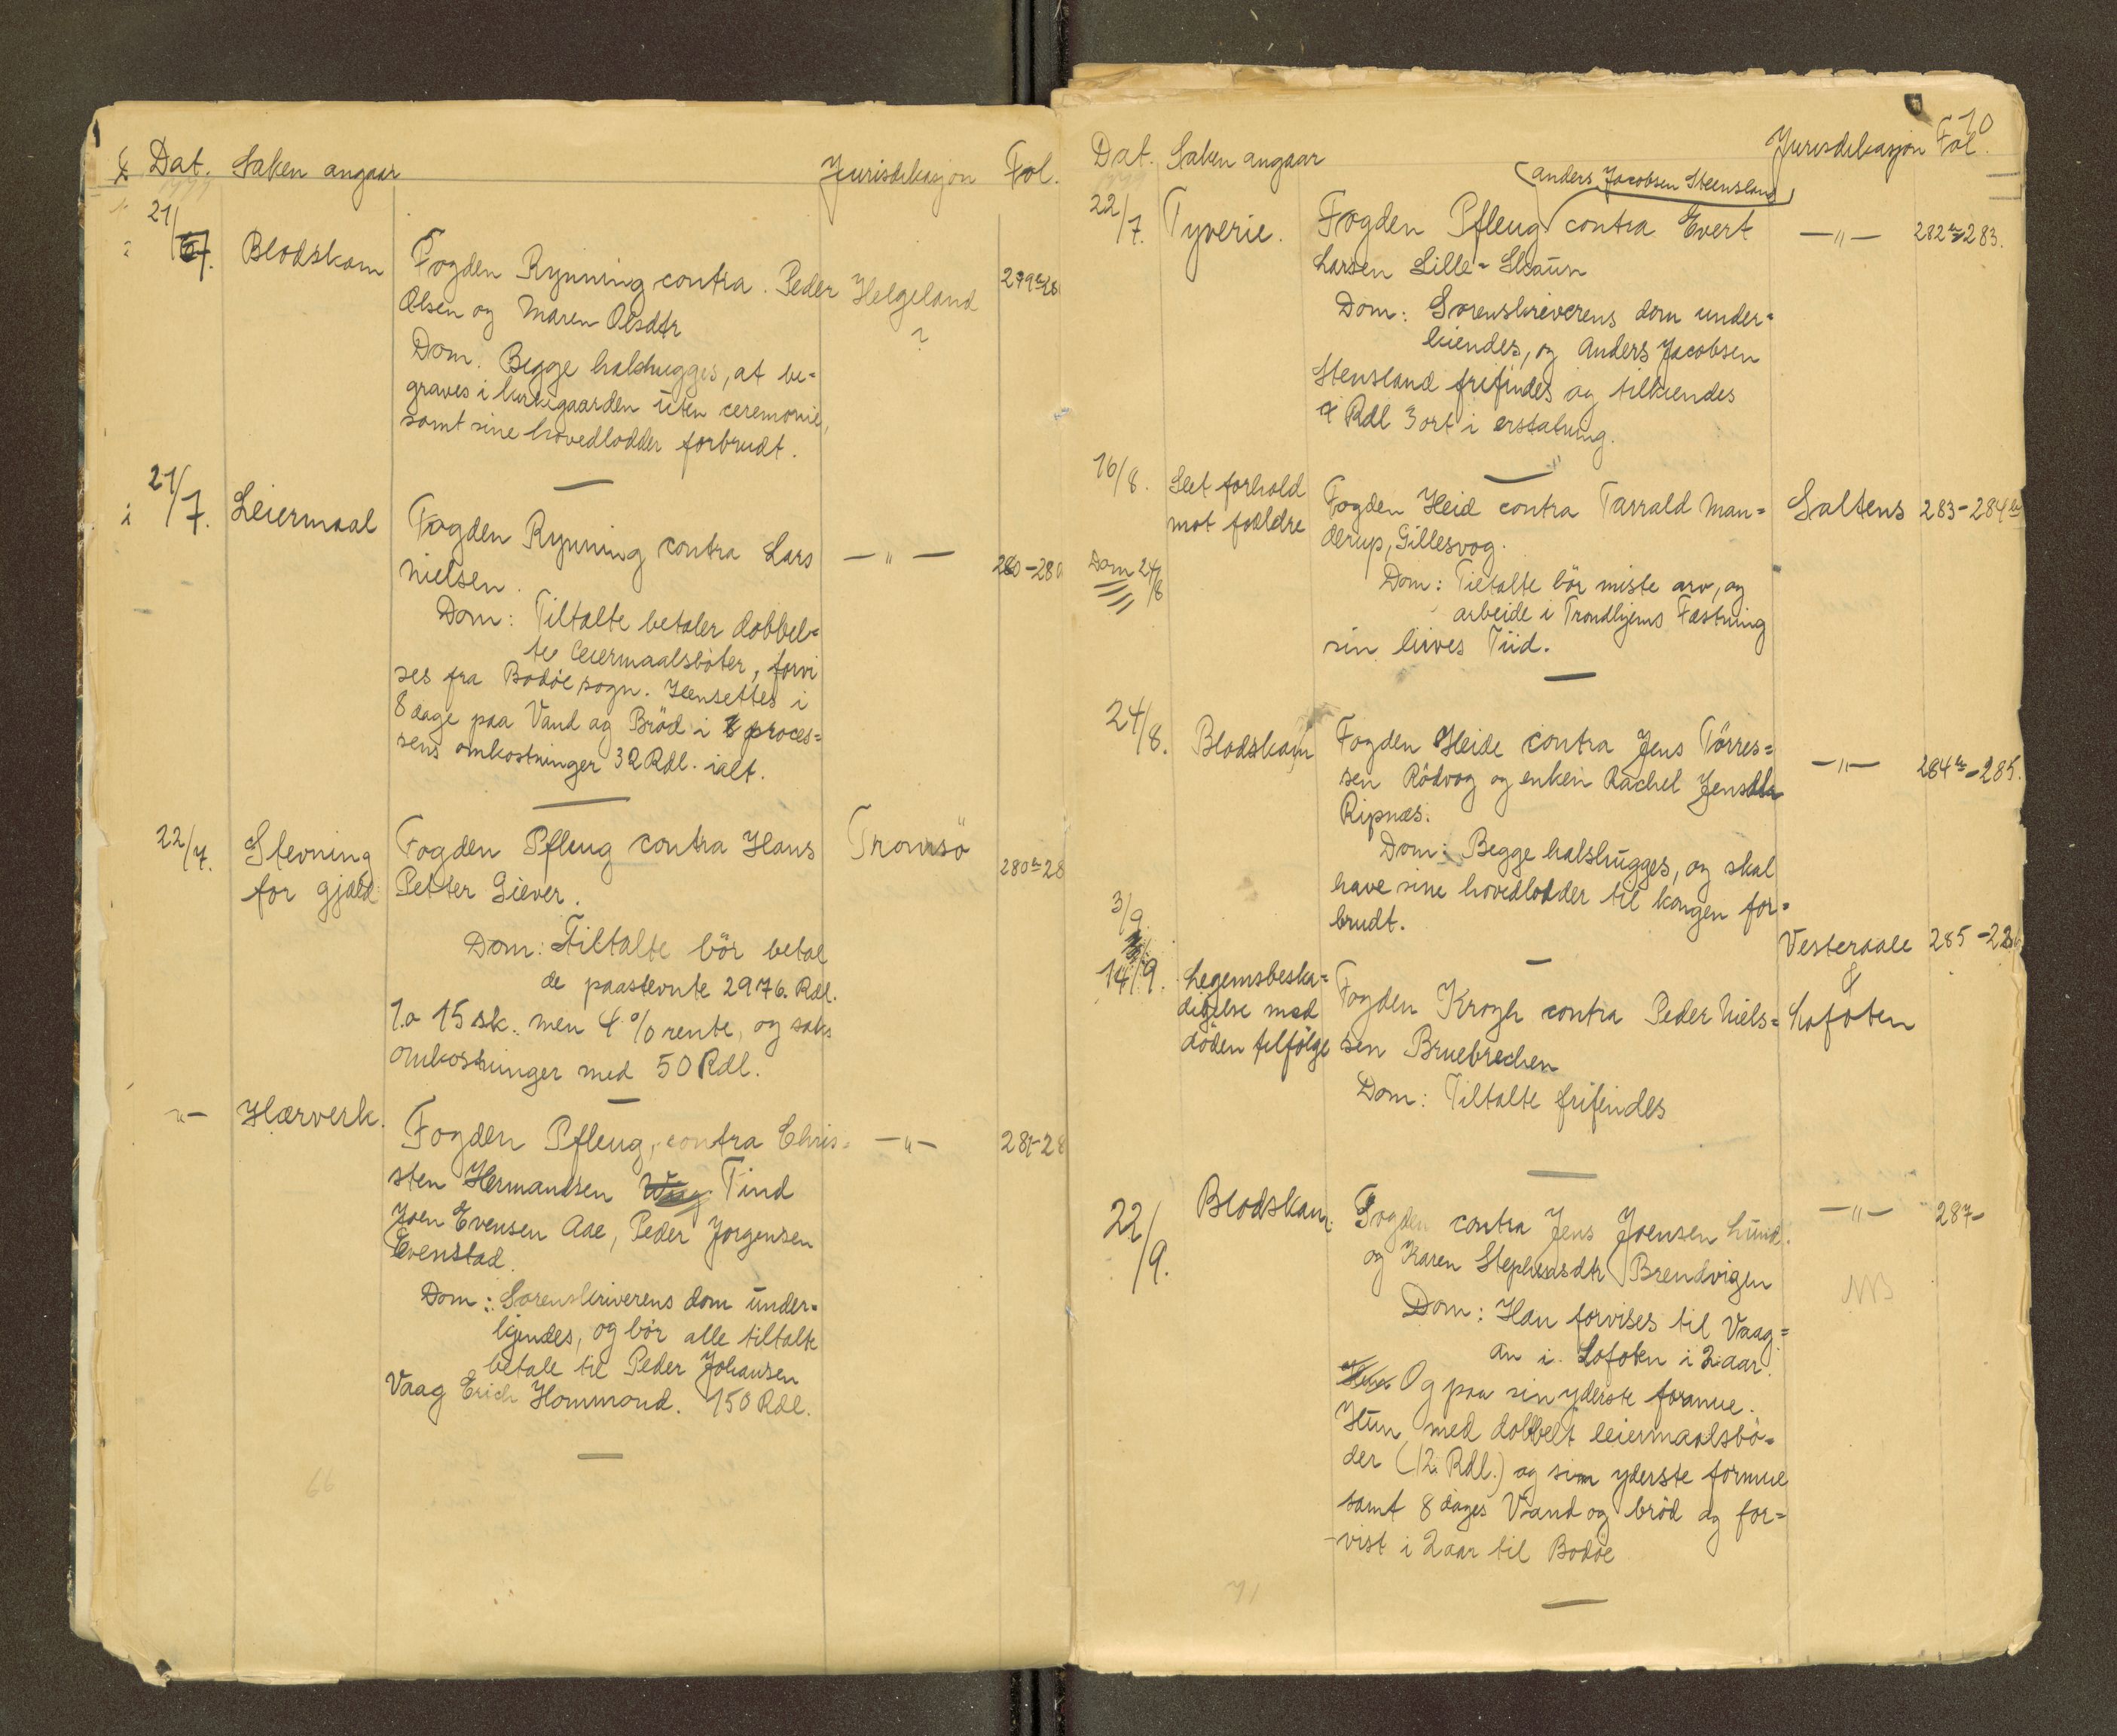 Dat. Saken angaar Jurisdiksjon Fol.
21/7. Blodskam
Fogden Rynning contra. Peder Helgeland
Olsen og Maren Olsdtr ?
Dom. Begge halshugges, at be=
graves i kirkegaarden uten ceremonie,
samt sine hovedlodder forbrudt.
21/7. Leiermaal
Fogden Rynning contra Lars —"—
Nielsen.
Dom: Tiltalte betaler dobbel=
te leiermaalsböter, forvi
ses fra Bodöe sogn. Hensettes i
8 dage paa Vand og Bröd i proces=
sens omkostninger 32 Rdl. ialt.
22/7. Stevning for gjæld
Fogden Pfleug contra Hans Tromsö
Petter Giever.
Dom: Tiltalte bör betal
de paastevnte 2976. Rdl.
1.o 15 sk. men 4 % rente, og saks
omkostninger med 50 Rdl.
"— Hærverk.
Fogden Pfleug, contra Chris= —"—
sten Hermandsen Tind
Joen Evensen Aae, Peder Jorgensen
Evenstad.
Dom: Sorenskriverens dom under=
kjendes, og bör alle tiltalte
betale til Peder Johansen
Vaag Erich Hommond. 150 Rdl.
66
10
Dat. Saken angaar Jurisdiksjon Fol.
(Anders Jacobsen Steensland)
22/7. Tyverie. Fogden Pfleug contra Evert —"— 282-283.
Larsen Lille-Skaun
Dom: Sorenskriverens dom under=
kiendes, og Anders Jacobsen
Stensland frifindes og tilkiendes
4 Rdl 3 ort i erstatning.
16/8. Slet forhold mot forældre
Fogden Heid contra Tarrald Man= Saltens 283-284
derup, Gillesvog.
Dom 24/8
Dom: Tiltalte bör miste arv, og
arbeide i Trondhjems Fæstning
sin liives Tiid.
24/8. Blodskam Fogden Heide contra Jens Törres= —"— 284-285.
sen Rödvog og enken Rachel Jensdtr
Ripnæs.
Dom: Begge halshugges, og skal
have sine hovedlodder til kongen for=
brudt.
3/9
14/9. Legemsbeska= Vesteraale 285-
digelse med & Lofoten
döden tilfölge
Fogden Krogh contra Peder Niels=
sen Bruebrechen
Dom: Tiltalte frifindes
22/9. Blodskam. Fogden contra Jens Joensen Lund. —"— 287-
og Karen Stephensdtr Brendvigen
NB
Dom: Han forvises til Vaag=
an i Lofoten i 2 aar.
Og paa sin yderste formue.
Hun med dobbelt leiermaalsbö=
der (12. Rdl.) og sin yderste formue
samt 8 dages Vand og bröd og for=
vist i 2 aar til Bodöe
71